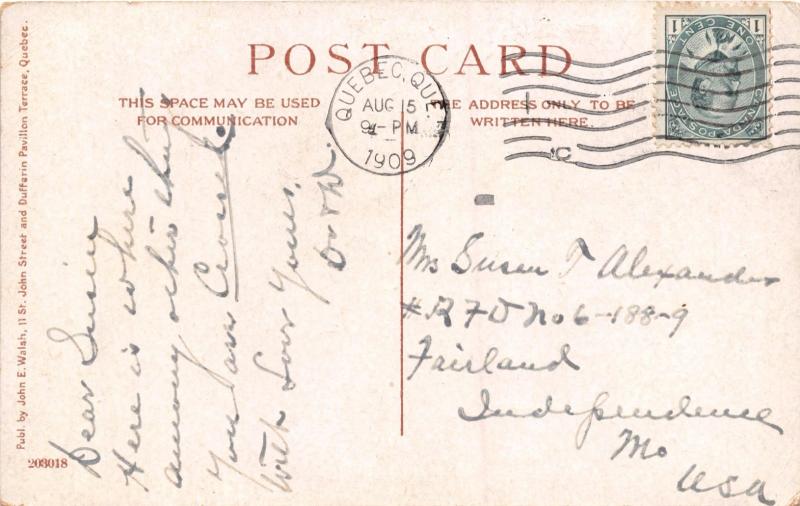 POST CARD
THIS SPACE MAY BE USED
FOR COMMUNICATION
THE ADDRESS ONLY TO BE
WRITTEN HERE.
QUEBEC, QUE
AUG 5
9-PM
1909
1 ONE CENT 1
CANADA POSTAGE
Dear Susie
Here is where
among other
you
Crossed.
With Love Yours,
Mrs Susen T Alexander
# R F D No 6-188-9
Fairland
Independence
Mo
USA
Publ. by John E. Walsh, 11 St. John Street and Dufferin Pavillon Terrace, Quebec.
203018